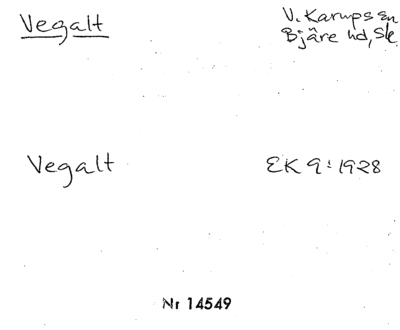 Vegalt
V. Karups sn
Bjäre hd, Sk.
Vegalt
EK 9: 1928
Nr 14549